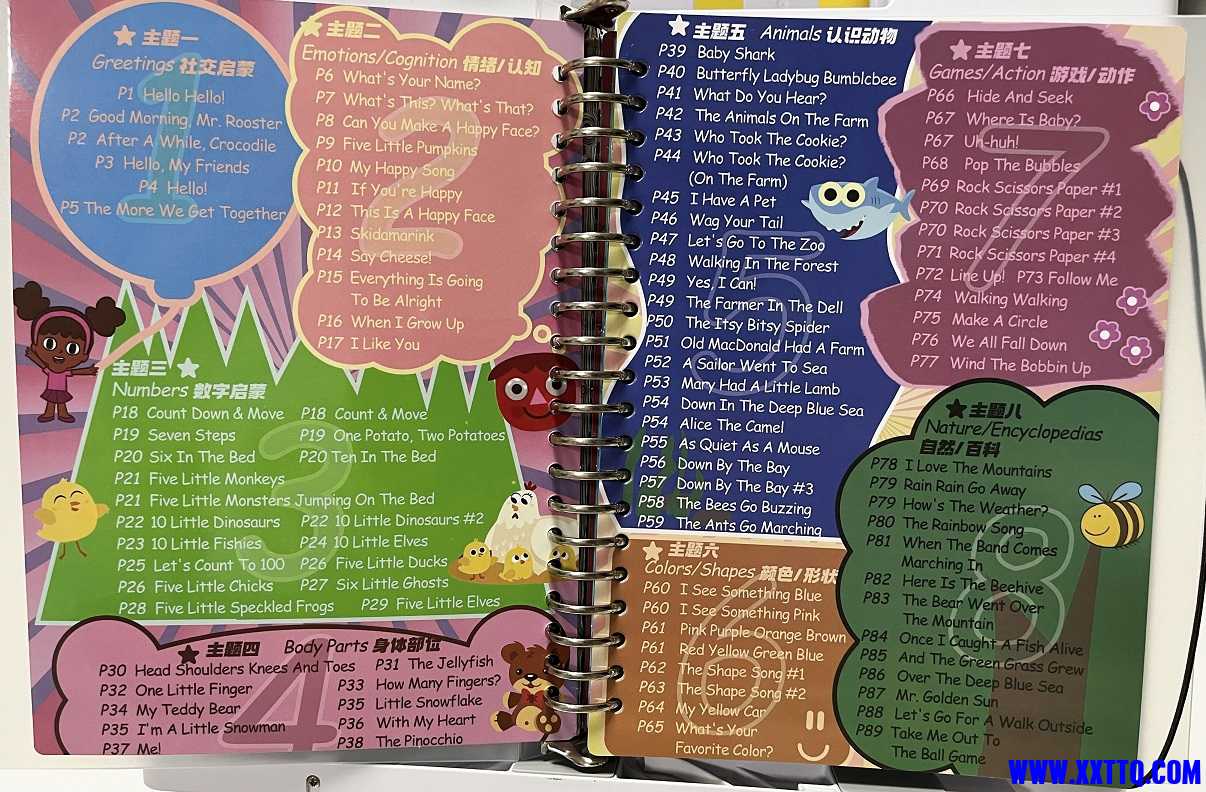 主题一
Greetings 社交启蒙
P1 Hello Hello!
P2 Good Morning, Mr. Rooster
P2 After A While, Crocodile
P3 Hello, My Friends
P4 Hello!
P5 The More We Get Together
1
主题二
Emotions/Cognition 情绪/认知
P6 What's Your Name?
P7 What's This? What's That?
P8 Can You Make A Happy Face?
P9 Five Little Pumpkins
P10 My Happy Song
P11 If You're Happy
P12 This Is A Happy Face
P13 Skidamarink
P14 Say Cheese!
P15 Everything Is Going
To Be Alright
P16 When I Grow Up
P17 I Like You
2
主题三
Numbers 数字启蒙
P18 Count Down & Move P18 Count & Move
P19 Seven Steps P19 One Potato, Two Potatoes
P20 Six In The Bed P20 Ten In The Bed
P21 Five Little Monkeys
P21 Five Little Monsters Jumping On The Bed
P22 10 Little Dinosaurs P22 10 Little Dinosaurs #2
P23 10 Little Fishies P24 10 Little Elves
P25 Let's Count To 100 P26 Five Little Ducks
P26 Five Little Chicks P27 Six Little Ghosts
P28 Five Little Speckled Frogs P29 Five Little Elves
3
主题四 Body Parts 身体部位
P30 Head Shoulders Knees And Toes P31 The Jellyfish
P32 One Little Finger P33 How Many Fingers?
P34 My Teddy Bear P35 Little Snowflake
P35 I'm A Little Snowman P36 With My Heart
P37 Me! P38 The Pinocchio
4
主题五 Animals 认识动物
P39 Baby Shark
P40 Butterfly Ladybug Bumblcbee
P41 What Do You Hear?
P42 The Animals On The Farm
P43 Who Took The Cookie?
P44 Who Took The Cookie?
(On The Farm)
P45 I Have A Pet
P46 Wag Your Tail
P47 Let's Go To The Zoo
P48 Walking In The Forest
P49 Yes, I Can!
P49 The Farmer In The Dell
P50 The Itsy Bitsy Spider
P51 Old MacDonald Had A Farm
P52 A Sailor Went To Sea
P53 Mary Had A Little Lamb
P54 Down In The Deep Blue Sea
P54 Alice The Camel
P55 As Quiet As A Mouse
P56 Down By The Bay
P57 Down By The Bay #3
P58 The Bees Go Buzzing
P59 The Ants Go Marching
5
主题六
Colors/Shapes 颜色/形状
P60 I See Something Blue
P60 I See Something Pink
P61 Pink Purple Orange Brown
P61 Red Yellow Green Blue
P62 The Shape Song #1
P63 The Shape Song #2
P64 My Yellow Car
P65 What's Your
Favorite Color?
6
主题七
Games/Action 游戏/动作
P66 Hide And Seek
P67 Where Is Baby?
P67 Uh-huh!
P68 Pop The Bubbles
P69 Rock Scissors Paper #1
P70 Rock Scissors Paper #2
P70 Rock Scissors Paper #3
P71 Rock Scissors Paper #4
P72 Line Up! P73 Follow Me
P74 Walking Walking
P75 Make A Circle
P76 We All Fall Down
P77 Wind The Bobbin Up
7
主题八
Nature/Encyclopedias
自然/百科
P78 I Love The Mountains
P79 Rain Rain Go Away
P79 How's The Weather?
P80 The Rainbow Song
P81 When The Band Comes
Marching In
P82 Here Is The Beehive
P83 The Bear Went Over
The Mountain
P84 Once I Caught A Fish Alive
P85 And The Green Grass Grew
P86 Over The Deep Blue Sea
P87 Mr. Golden Sun
P88 Let's Go For A Walk Outside
P89 Take Me Out To
The Ball Game
8
WWW.XXTTQ.COM